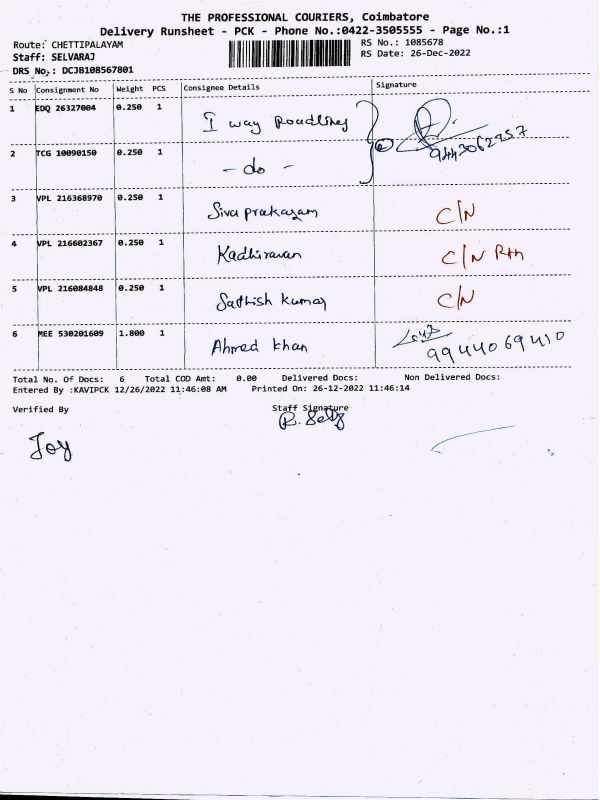 THE PROFESSIONAL COURIERS, Coimbatore
Delivery Runsheet - PCK - Phone No.:0422-3505555 - Page No.:1
Route: CHETTIPALAYAM RS No.: 1085678
Staff: SELVARAJ RS Date: 26-Dec-2022
DRS No.: DCJB108567801
S No Consignment No Weight PCS Consignee Details Signature
1 EDQ 26327004 0.250 1 I way roadlines
9443062957
2 TCG 10090150 0.250 1 - do -
3 VPL 216368970 0.250 1 Siva prakasam C/N
4 VPL 216602367 0.250 1 Kadhiravan C/N Rtn
5 VPL 216084848 0.250 1 Sathish kumar C/N
6 MEE 530201609 1.800 1 Ahmed khan 9944069410
Total No. Of Docs: 6 Total COD Amt: 0.00 Delivered Docs: Non Delivered Docs:
Entered By :KAVIPCK 12/26/2022 11:46:08 AM Printed On: 26-12-2022 11:46:14
Verified By Staff Signature
Joy